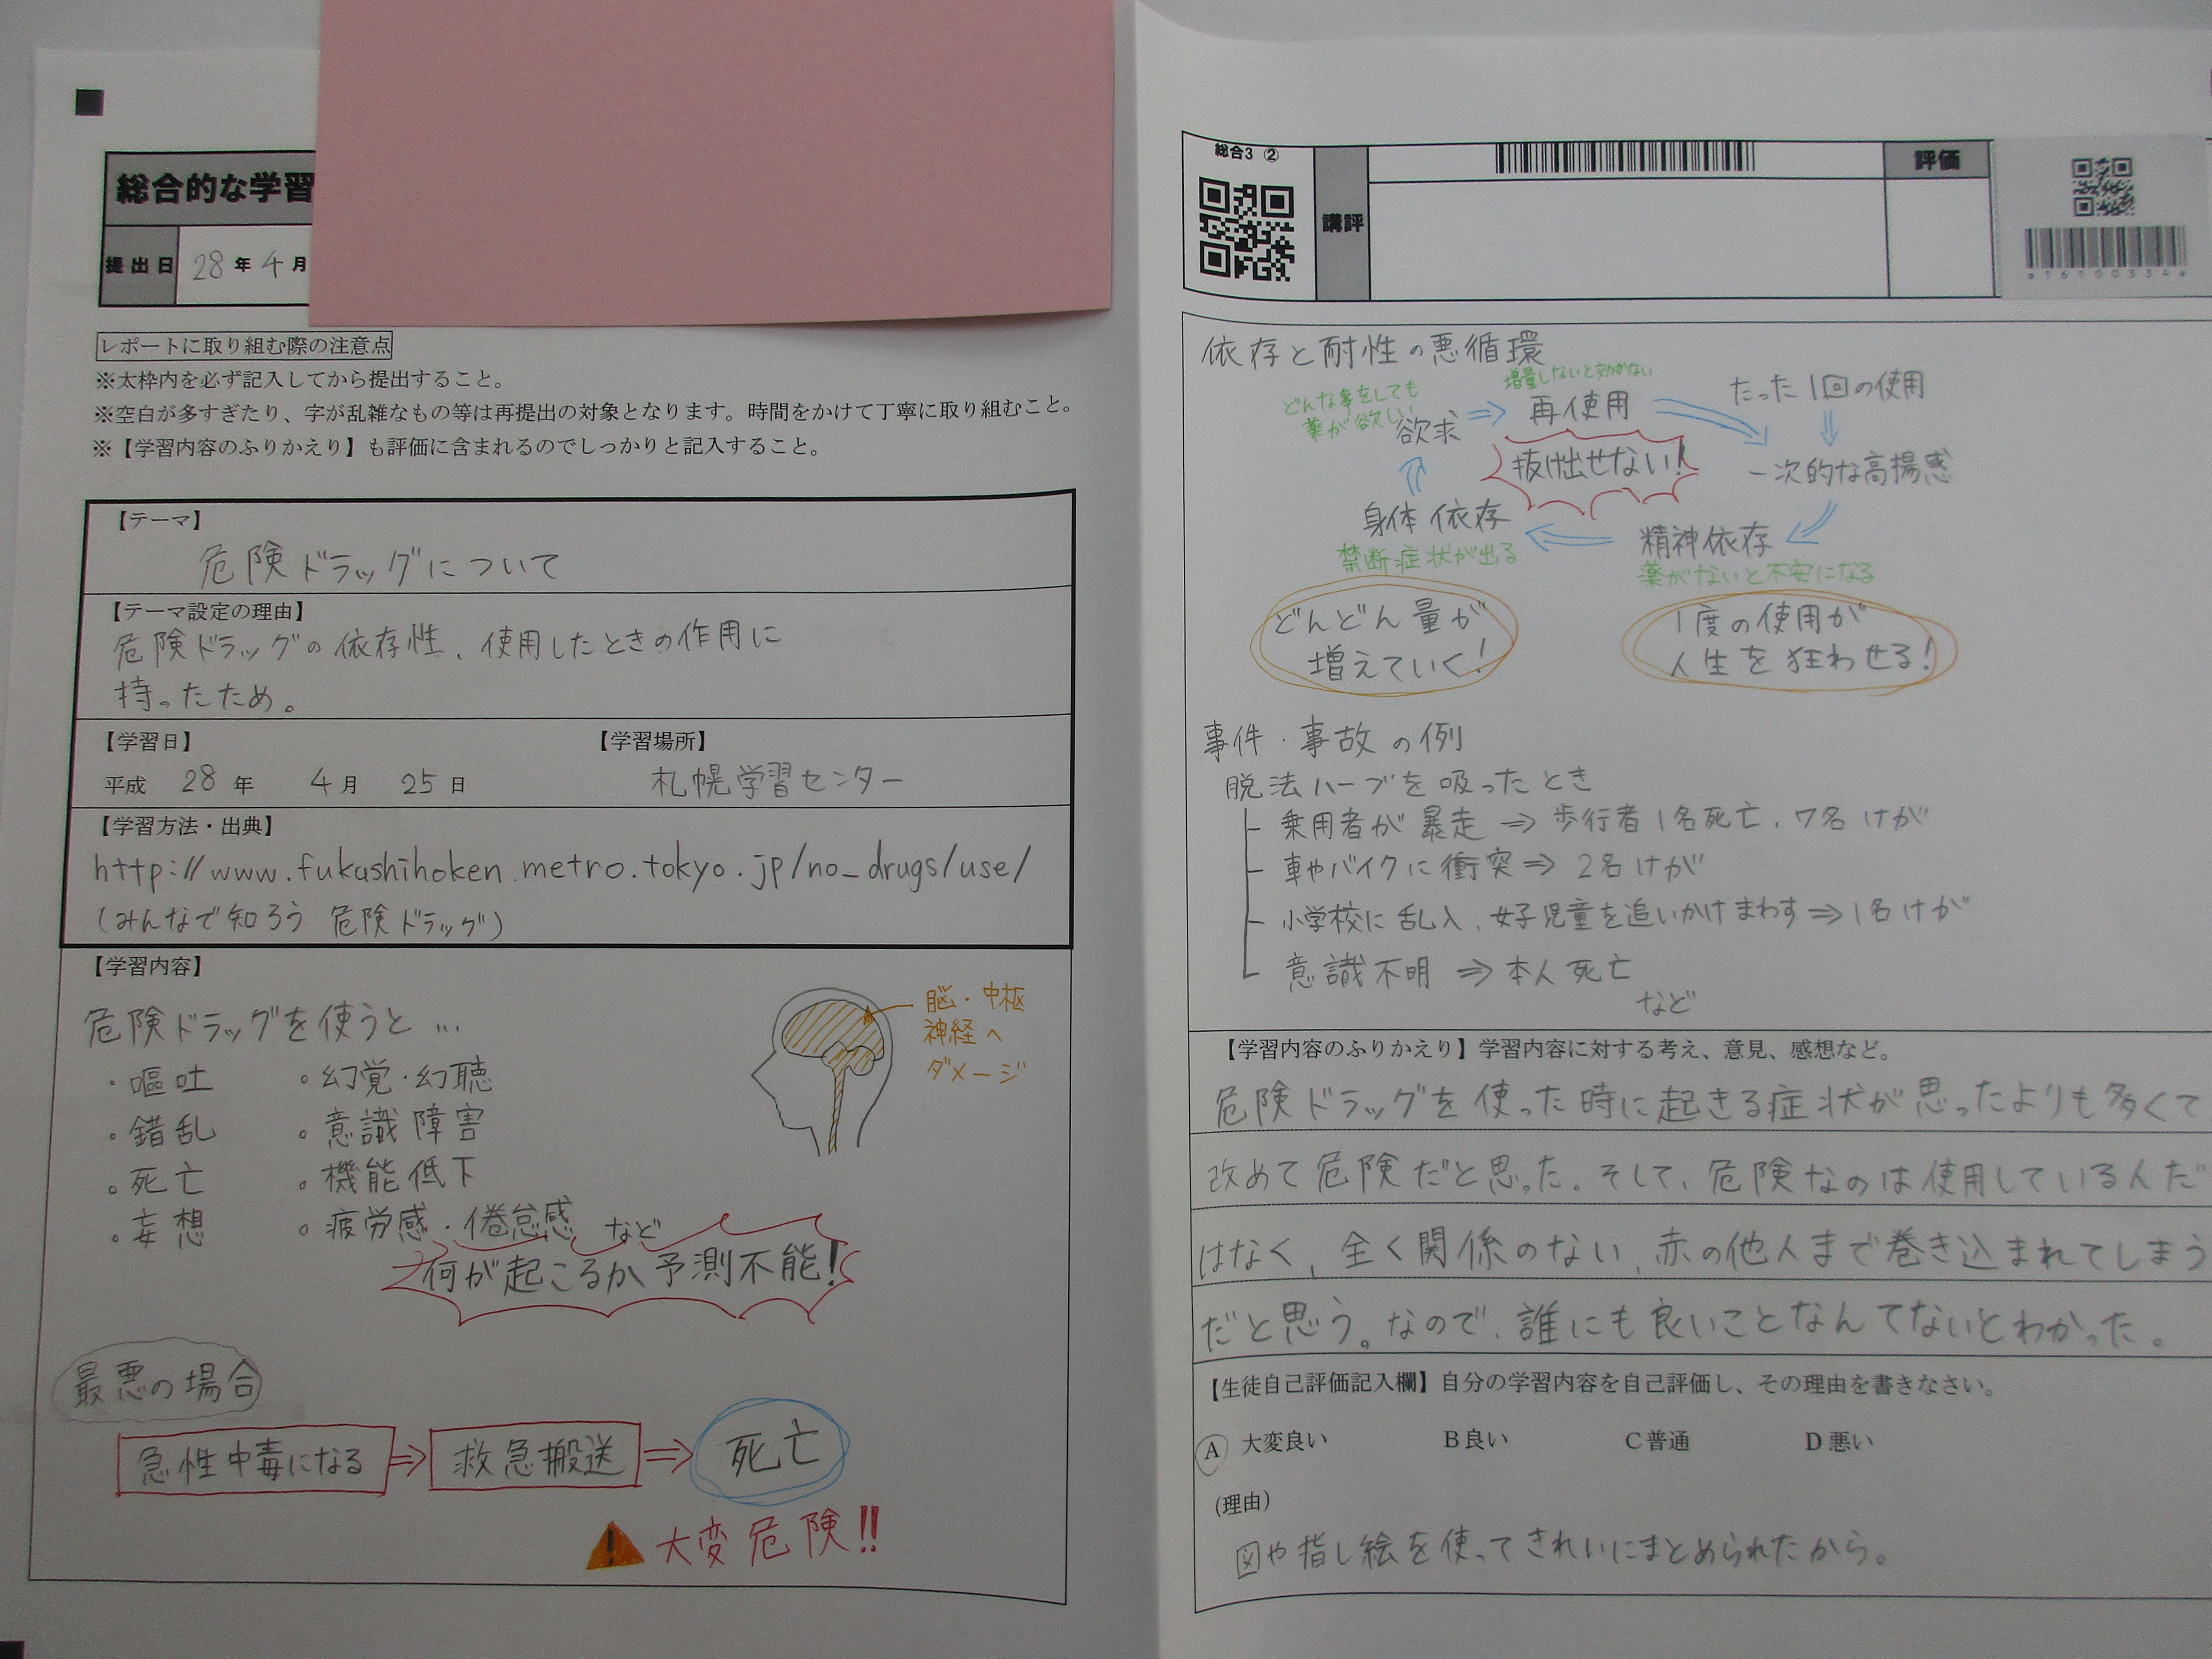 総合的な学習
提出日 28年4月
レポートに取り組む際の注意点
※太枠内を必ず記入してから提出すること。
※空白が多すぎたり、字が乱雑なもの等は再提出の対象となります。時間をかけて丁寧に取り組むこと。
※【学習内容のふりかえり】も評価に含まれるのでしっかりと記入すること。
【テーマ】
危険ドラッグについて
【テーマ設定の理由】
危険ドラッグの依存性、使用したときの作用に
持ったため。
【学習日】 【学習場所】
平成 28年 4月 25日 札幌学習センター
【学習方法・出典】
http://www.fukashihoken.metro.tokyo.jp/no_drugs/use/
(みんなで知ろう 危険ドラッグ)
【学習内容】
危険ドラッグを使うと…
・嘔吐 ・幻覚・幻聴
・錯乱 ・意識障害
・死亡 ・機能低下
・妄想 ・疲労感・倦怠感 など
脳・中枢
神経へ
ダメージ
何が起こるか予測不能!
最悪の場合
急性中毒になる⇒救急搬送⇒死亡
! 大変危険!!
総合3 ②
講評
評価
a161003344a
依存と耐性の悪循環
どんな事をしても
薬が欲しい
増量しないと効かない
欲求⇒再使用
たった1回の使用
抜け出せない!
一次的な高揚感
身体依存
禁断症状が出る
精神依存
薬がないと不安になる
どんどん量が
増えていく!
1度の使用が
人生を狂わせる!
事件・事故の例
脱法ハーブを吸ったとき
乗用者が暴走⇒歩行者1名死亡、7名けが
車やバイクに衝突⇒2名けが
小学校に乱入、女子児童を追いかけまわす⇒1名けが
意識不明⇒本人死亡
など
【学習内容のふりかえり】学習内容に対する考え、意見、感想など。
危険ドラッグを使った時に起きる症状が思ったよりも多くて
改めて危険だと思った。そして、危険なのは使用している人だ
はなく、全く関係のない、赤の他人まで巻き込まれてしまう
だと思う。なので、誰にも良いことなんてないとわかった。
【生徒自己評価記入欄】自分の学習内容を自己評価し、その理由を書きなさい。
A 大変良い B 良い C 普通 D 悪い
(理由)
図や指し絵を使ってきれいにまとめられたから。